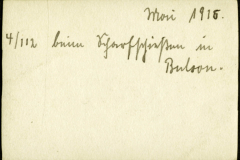 Mai 1915.
4/112 beim Scharfschießen in
Buloon.